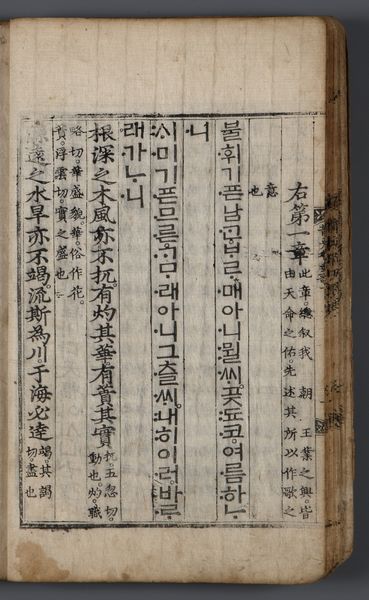 右第一章
此章。緫叙我 朝 王業之興。皆
由天命之佑。先述其所以作歌之
意
也
불휘기픈남ᄀᆞᆫᄇᆞᄅᆞ매아니뮐ᄊᆡ。곶됴코。여름하ᄂᆞ
니
ᄉᆡ미기픈므른ᄀᆞᄆᆞ래아니그츨ᄊᆡ。내히이러。바ᄅᆞ
래가ᄂᆞ니
根深之木風亦不扤。有灼其華有蕡其實
扤。五忽切。
動也。灼。職
略切。華盛貌。華。俗作花。
蕡。浮雲切。實之盛也
遠之水旱亦不竭。流斯為川。于海必達
竭。其謁
切。盡也